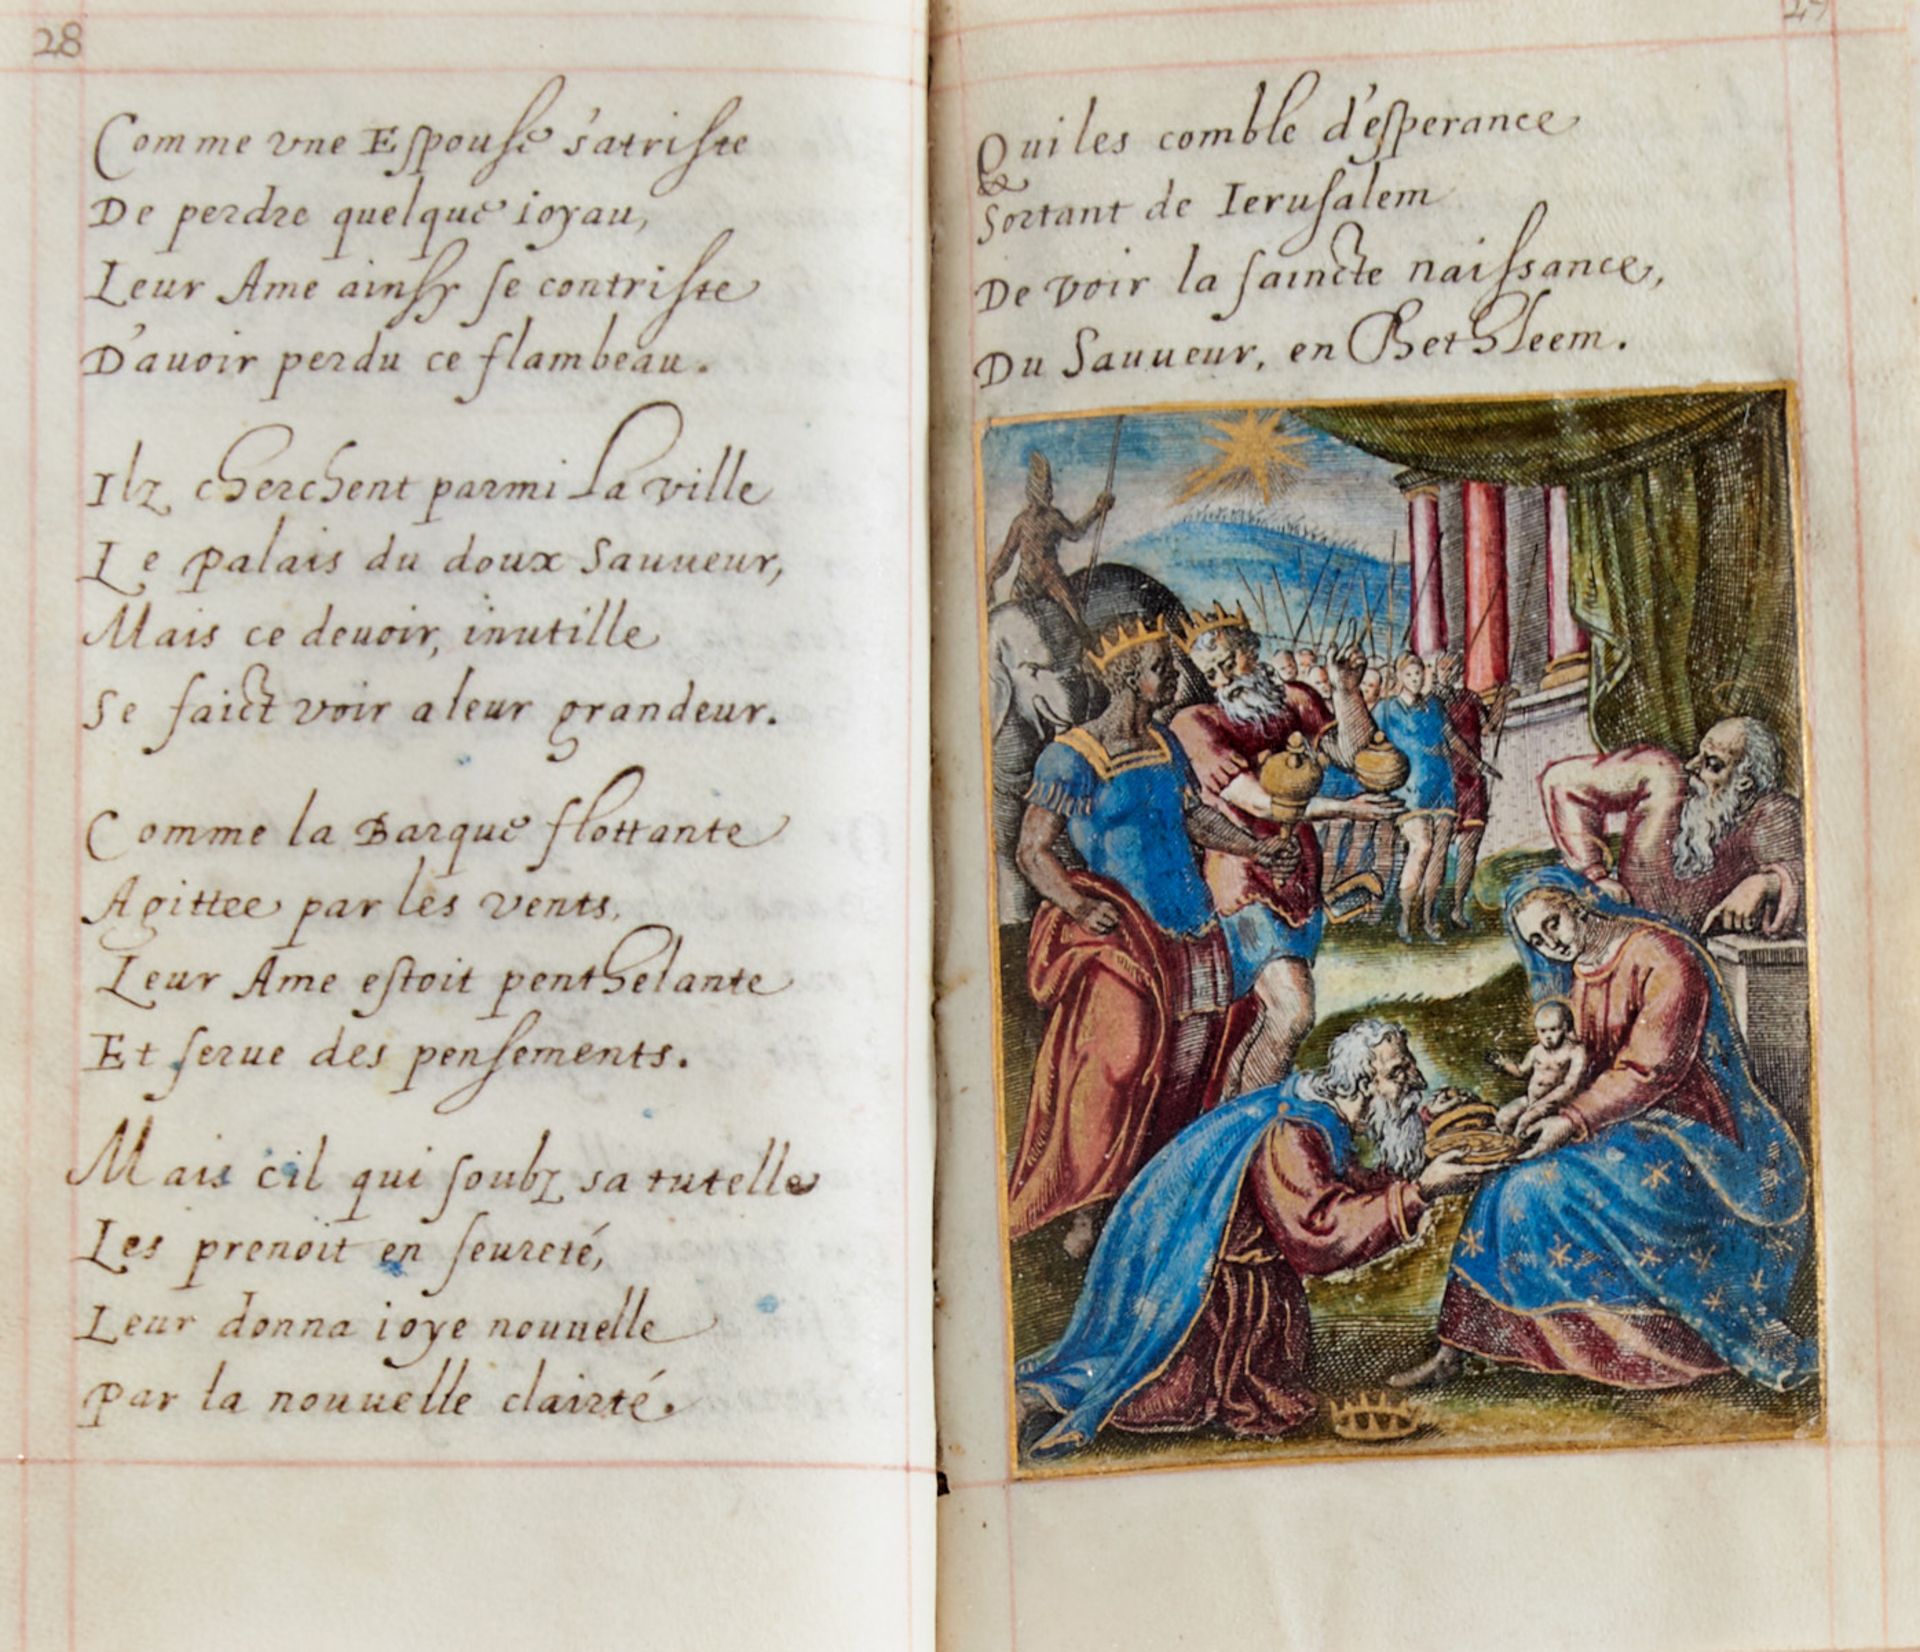 28
Comme vne Espouse s'atriste
De perdre quelque ioyau,
Leur Ame ainsy se contriste
D'auoir perdu ce flambeau.
Ilz cherchent parmi La ville
Le palais du doux Sauueur,
Mais ce deuoir, inutille
Se faict voir a leur grandeur.
Comme la Barque flottante
Agittee par les vents,
Leur Ame estoit penthelante
Et serue des pensements.
Mais cil qui soubz sa tutelle
Les prenoit en seureté,
Leur donna ioye nouuelle
Par la nouuelle clairté.
Qui les comble d'esperance
Sortant de Ierusalem
De voir la saincte naissance,
Du Sauueur, en Bethleem.